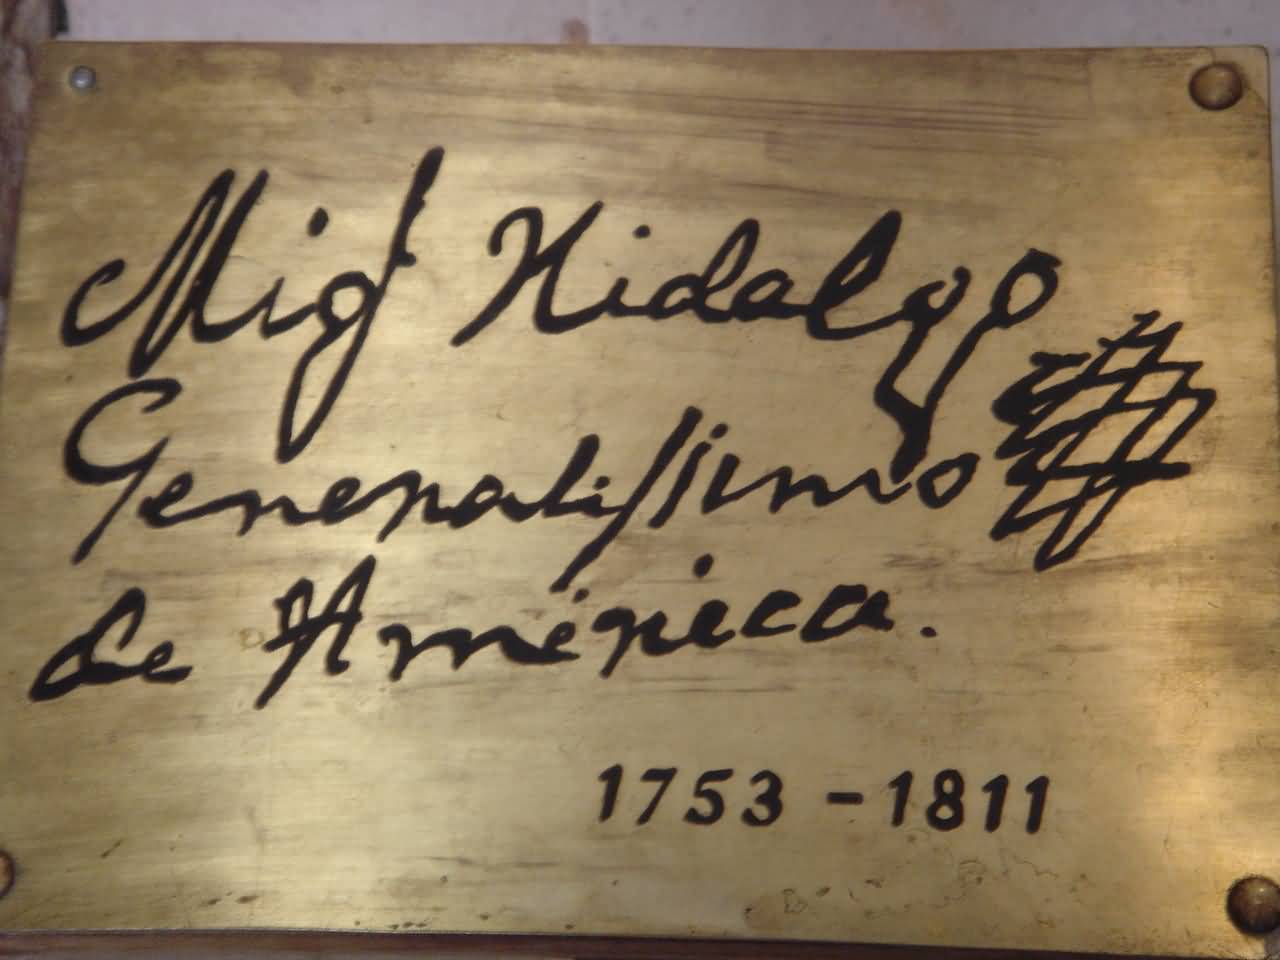 Migl Hidalgo
Generalissimo
de América.
1753 - 1811